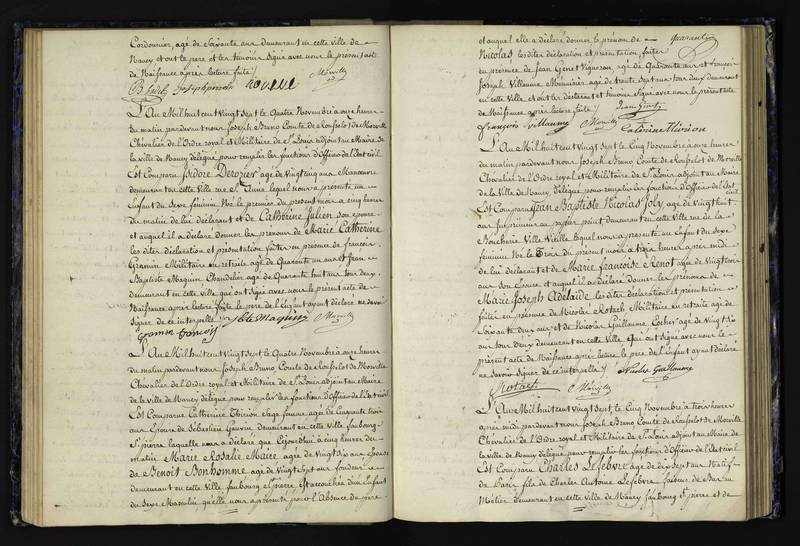 Cordonnier, agé de Soixante ans demeurant en cette ville de
Nancy et ont le pere et les témoins signé avec nous le présent acte
de Naissance après lecture faite /
Morville
Joseph
L'An Mil huit cent Vingt Sept le Quatre Novembre à onze heures
du matin pardevant nous Joseph Bruno Comte de Morville
Chevalier de l'Ordre royal et Militaire de St Louis adjoint au Maire de
la ville de Nancy délégué pour remplir les fonctions d'Officier de l'Etat civil
Est Comparu Isidore Deroyer agé de Vingt cinq ans Manoeuvre
demeurant en cette Ville rue St Anne lequel nous a présenté un
Enfant du Sexe féminin Né le premier du présent mois à cinq heures
du matin de lui déclarant et de Catherine Julien son épouse
et auquel il a déclaré donner les prénoms de Marie Catherine
les dites déclaration et présentation faites en présence de françois
Gramin Militaire en retraite agé de Quarante un ans et Jean
Baptiste Maguin Chandelier agé de Quarante huit ans tous deux
demeurant en cette ville qui ont Signé avec nous le présent acte de
Naissance après lecture faite le pere de l'Enfant ayant déclaré ne savoir
signer de ce interpellé
Morville
L'An Mil huit cent Vingt Sept le Quatre Novembre à onze heures
du matin pardevant nous Joseph Bruno Comte de Morville
Chevalier de l'Ordre royal et Militaire de St Louis adjoint au Maire
de la ville de Nancy délégué pour remplir les fonctions d'Officier de l'Etat civil
Est Comparue Catherine Thirion Sage femme agée de Cinquante trois
ans Epouse de Sébastien demeurant en cette ville faubourg
St pierre laquelle nous a déclaré que Cejourdhui à cinq heures du
matin Marie Rosalie Maire agée de Vingt six ans Epouse
de Benoit Bonhomme agé de Vingt Sept ans fondeur
demeurant en cette Ville faubourg St pierre, Est accouchée d'un Enfant
du Sexe Masculin qu'elle nous a présenté pour l'Absence du pere
et auquel elle a déclaré donner le prénom de
Nicolas, les dites déclaration et présentation faites
en présence de Jean Genet Vigneron, agé de Quarante ans et françois
Villaume Menuisier agé de trente Sept ans tous deux demeurant
en cette Ville et ont les déclarant et témoins Signé avec nous le présent acte
de Naissance après lecture faite /
françois Villaume Morville Catherine Thirion
L'An Mil huit cent Vingt Sept le Cinq Novembre à onze heures
du matin pardevant nous Joseph Bruno Comte de Morville
Chevalier de l'Ordre royal et Militaire de St Louis adjoint au Maire
de la Ville de Nancy, délégué pour remplir les fonctions d'Officier de l'Etat
Est Comparu Jean Baptiste Nicolas Joly agé de Vingt huit
ans Imprimeur en papier peint demeurant en cette Ville rue de la
Boucherie Ville Vieille lequel nous a présenté un Enfant du Sexe
féminin Né le Trois du présent mois à trois heures après midi
de lui déclarant et de Marie francoise Renot agée de Vingt
ans son Epouse et auquel il a déclaré donner les prénoms de
Marie Joseph Adelaide les dites déclaration et présentation
faites en présence de Nicolas Rotach Militaire en retraite agé de
Soixante deux ans et de Nicolas Guillaume Cocher agé de Vingt Six
ans tous deux demeurant en cette Ville qui ont Signé avec nous le
présent acte de Naissance après lecture le pere de l'Enfant ayant déclaré
ne savoir Signer de ce interpellé / Nicolas Guillaume
Rotach Morville
L'An Mil huit cent Vingt Sept, le Cinq Novembre à trois heures
après midi pardevant nous Joseph Bruno Comte de Morville
Chevalier de l'Ordre royal et Militaire de St Louis adjoint au Maire de
la ville de Nancy délégué pour remplir les fonctions d'Officier de l'Etat civil
Est Comparu Charles Lefebvre agé de dix sept ans Natif
de Paris fils de Charles Antoine Lefebvre faiseur de Bas au
Métier demeurant en cette Ville de Nancy faubourg St pierre et de